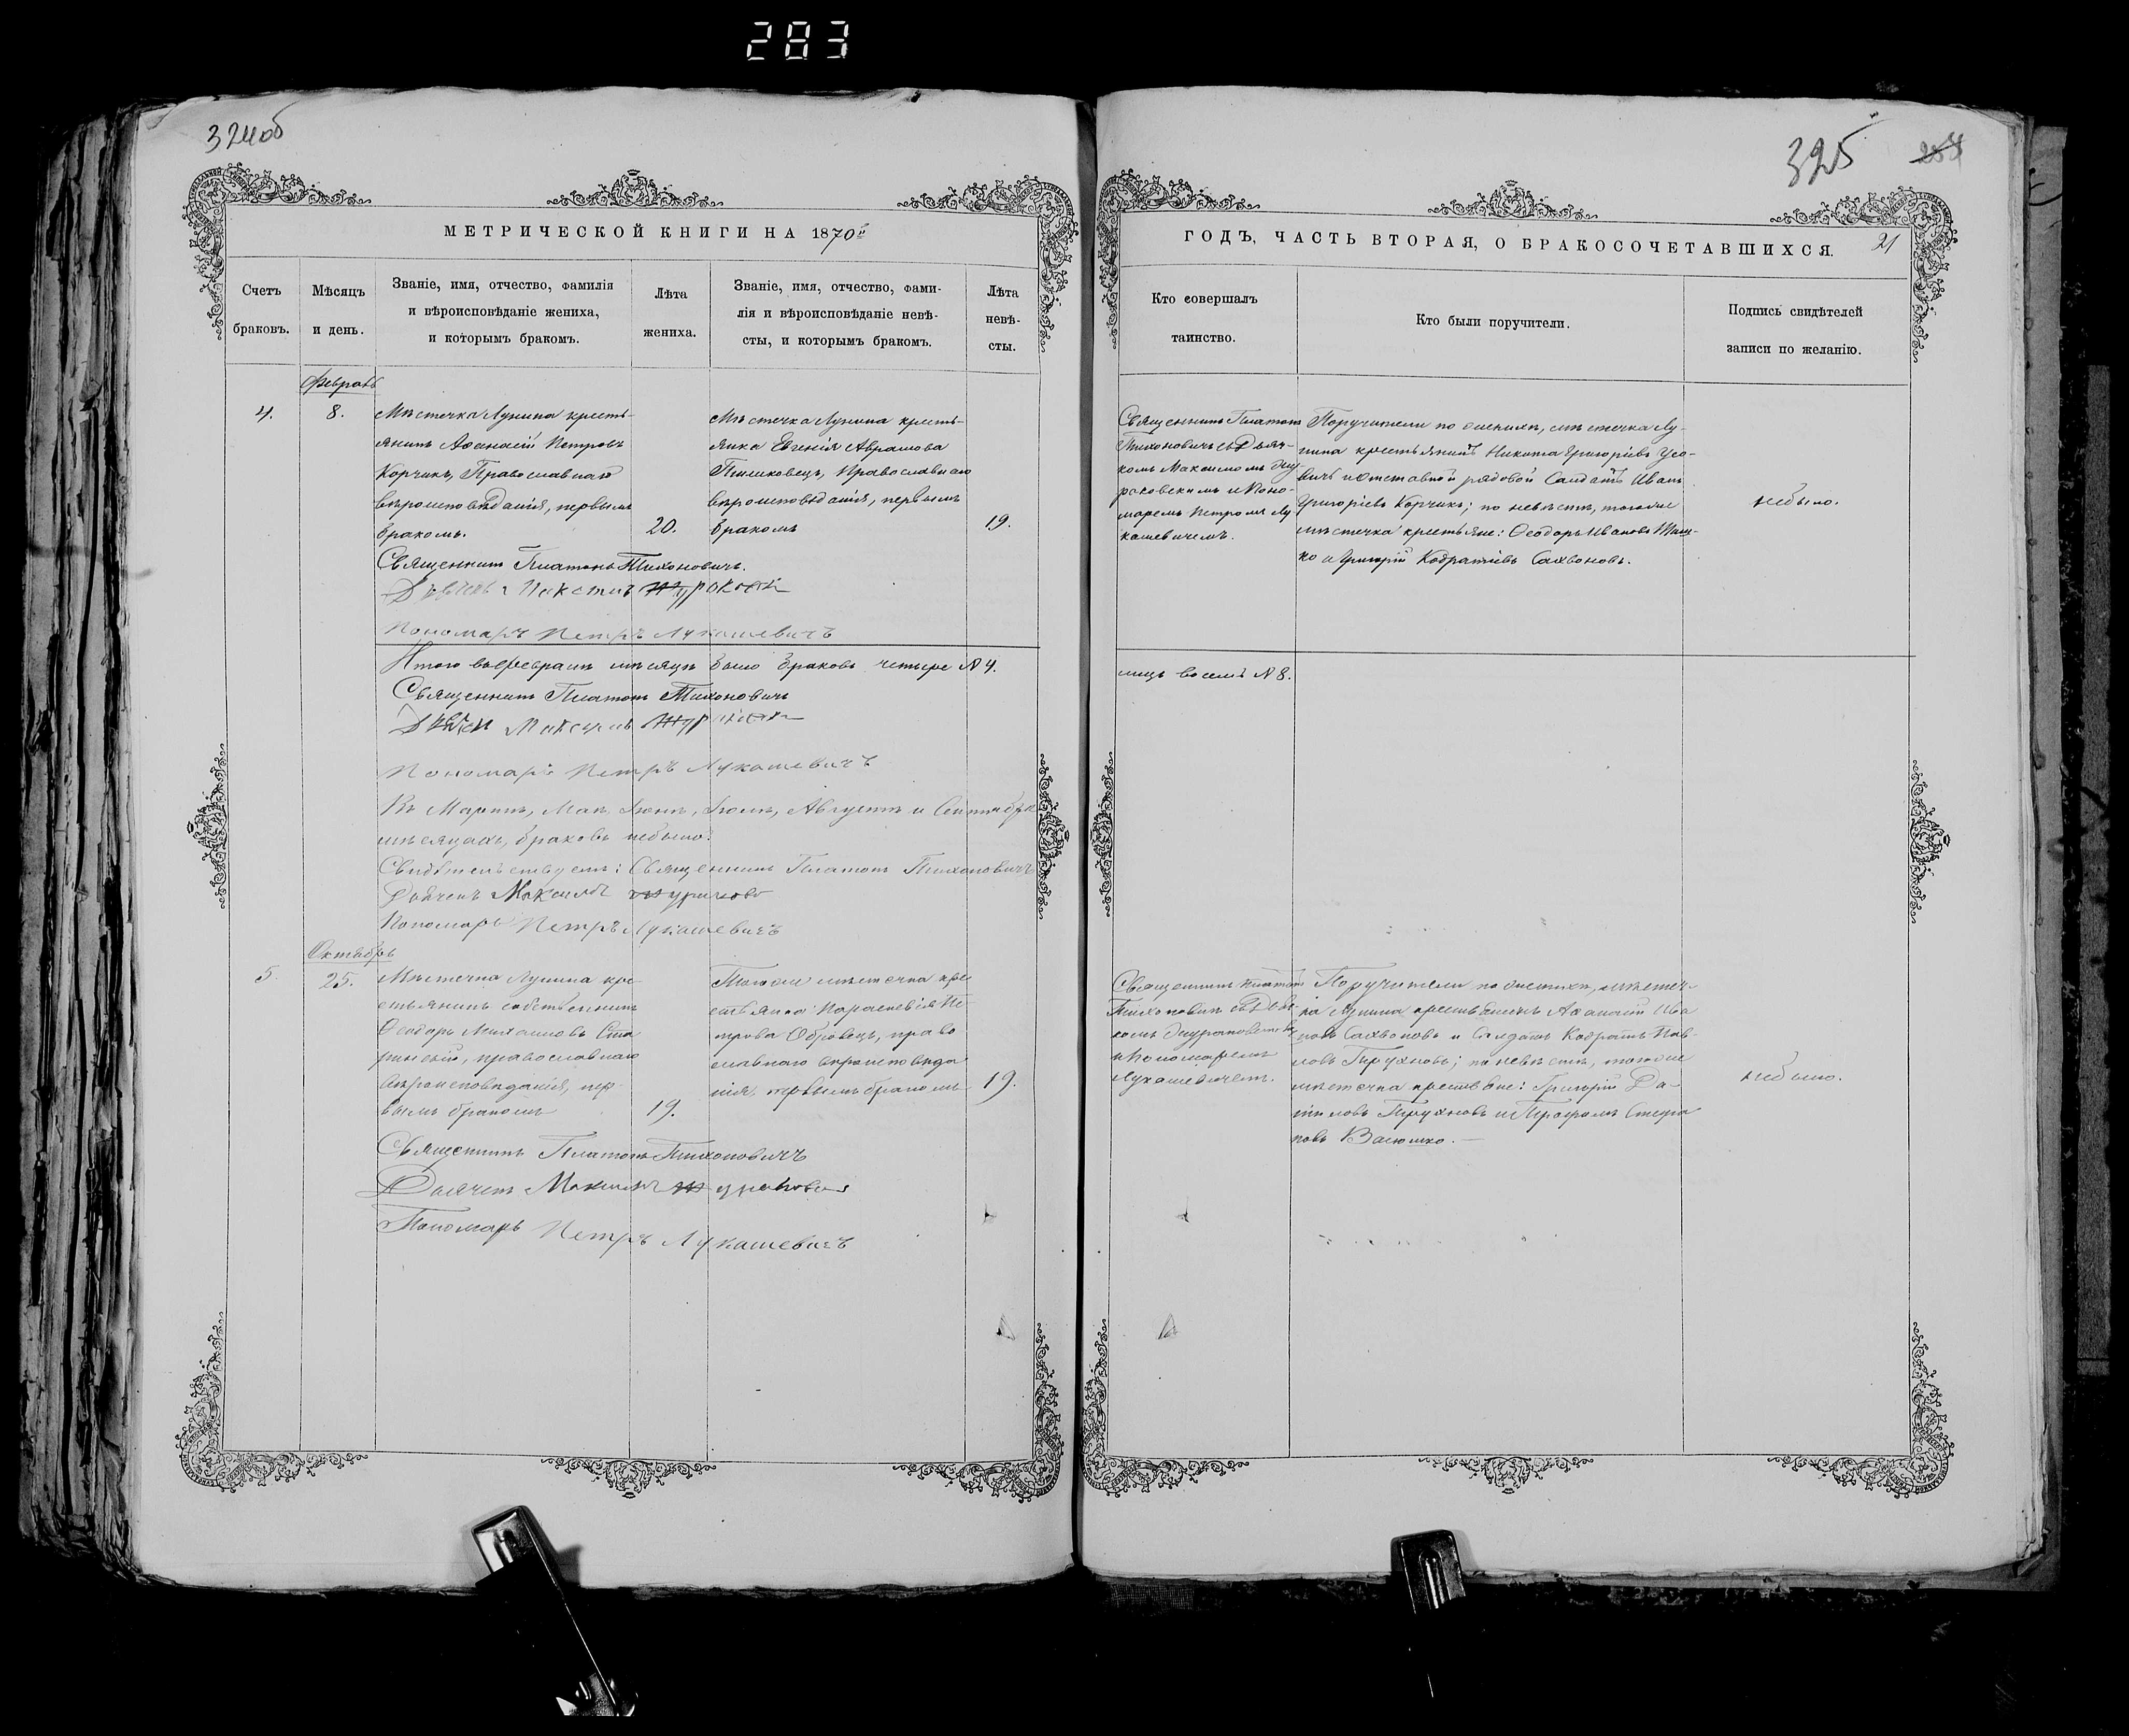 283
324об
325
254
МЕТРИЧЕСКОЙ КНИГИ НА 1870й
ГОДЪ, ЧАСТЬ ВТОРАЯ, О БРАКОСОЧЕТАВШИХСЯ.
21
Счетъ браковъ.
Мѣсяцъ и день.
Званіе, имя, отчество, фамилія
и вѣроисповѣданіе жениха,
и которымъ бракомъ.
Лѣта жениха.
Званіе, имя, отчество, фами-
лія и вѣроисповѣданіе невѣ-
сты, и которымъ бракомъ.
Лѣта невѣ-сты.
Кто совершалъ таинство.
Кто были поручители.
Подпись свидѣтелей
записи по желанію.
Февраль
4.
8.
Мѣстечка Лунина кресть-
янинъ Аѳанасій Петровъ
Корчикъ, Православнаго
вѣроисповѣданія, первымъ
бракомъ.
20.
Мѣстечка Лунина кресть-
янка Евгенія Аврамова
Пилиповецъ, Православнаго
вѣроисповѣданія, первымъ
бракомъ
19.
Священникъ Платонъ
Тихоновичъ съ Дьяч-
комъ Максимомъ Жу-
раковскимъ и Поно-
маремъ Петромъ Лу
кашевичемъ.
Поручители по женихѣ, мѣстечка Лу-
нина крестьянинъ Никита Григорьевъ
отставной рядовой Солдатъ Иванъ
Григорьевъ Корчикъ; по невѣстѣ, тогоже
мѣстечка крестьяне: Ѳеодоръ Ивановъ
ко и Григорій Кодратіевъ Сахвоновъ.
небыло.
Священникъ Платонъ Тихоновичъ.
Дьячекъ Максимъ Жураковскій
Пономарь Петръ Лукашевичъ
Итого въ Февралѣ мѣсяцѣ было браковъ четыре № 4.
лицъ восемь № 8.
Священникъ Платонъ Тихоновичъ
Дьячекъ Максимъ Жураковскій
Пономарь Петръ Лукашевичъ
Въ Мартѣ, Маѣ, Іюнѣ, Іюлѣ, Августѣ и Сентябрѣ
мѣсяцахъ, браковъ небыло.
Свидѣтельствуемъ: Священникъ Платонъ Тихоновичъ
Дьячекъ Максимъ Жураковс
Пономарь Петръ Лукашевичъ
Октябрь
5.
25.
Мѣстечка Лунина кре-
стьянинъ собственникъ
Ѳеодоръ Михаиловъ
православнаго
вѣроисповѣданія, пер-
вымъ бракомъ
19.
Тогоже мѣстечка кре
стьянка Параскевія Пе
трова Обровецъ, право
славнаго вѣроисповѣда
нія, первымъ бракомъ
19.
Священникъ Платонъ
Тихоновичъ съ Дьяч-
комъ Жураковскимъ
и Пономаремъ
Лукашевичемъ.
Поручители по женихѣ, мѣстеч-
ка Лунина крестьянинъ Аѳанасій Ива
новъ Сахвоновъ и Солдатъ Кодратъ Пав-
ловъ; по невѣстѣ, тогоже
мѣстечка крестьяне: Григорій Да-
ниловъ и Трофимъ Стефа
новъ Васюшко.
небыло.
Священникъ Платонъ Тихоновичъ
Дьячекъ Максимъ Жураковскій
Пономарь Петръ Лукашевичъ